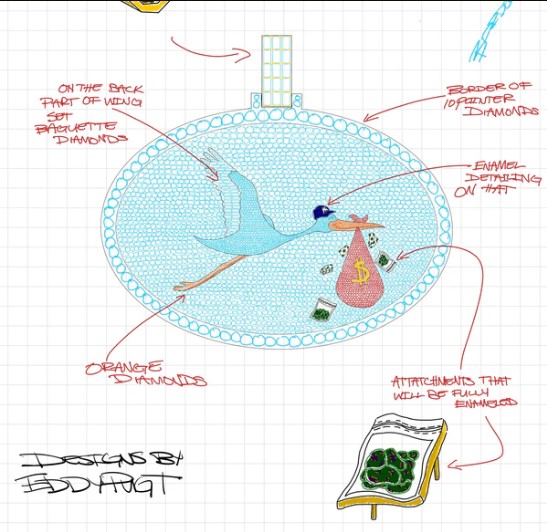 ON THE BACK
PART OF WING
SET
BAGUETTE
DIAMONDS
BORDER OF
10 POINTER
DIAMONDS
ENAMEL
DETAILING
ON HAT
$
ORANGE
DIAMONDS
ATTATCHMENTS THAT
WILL BE FULLY
ENAMELED
DESIGNS BY
EDDY